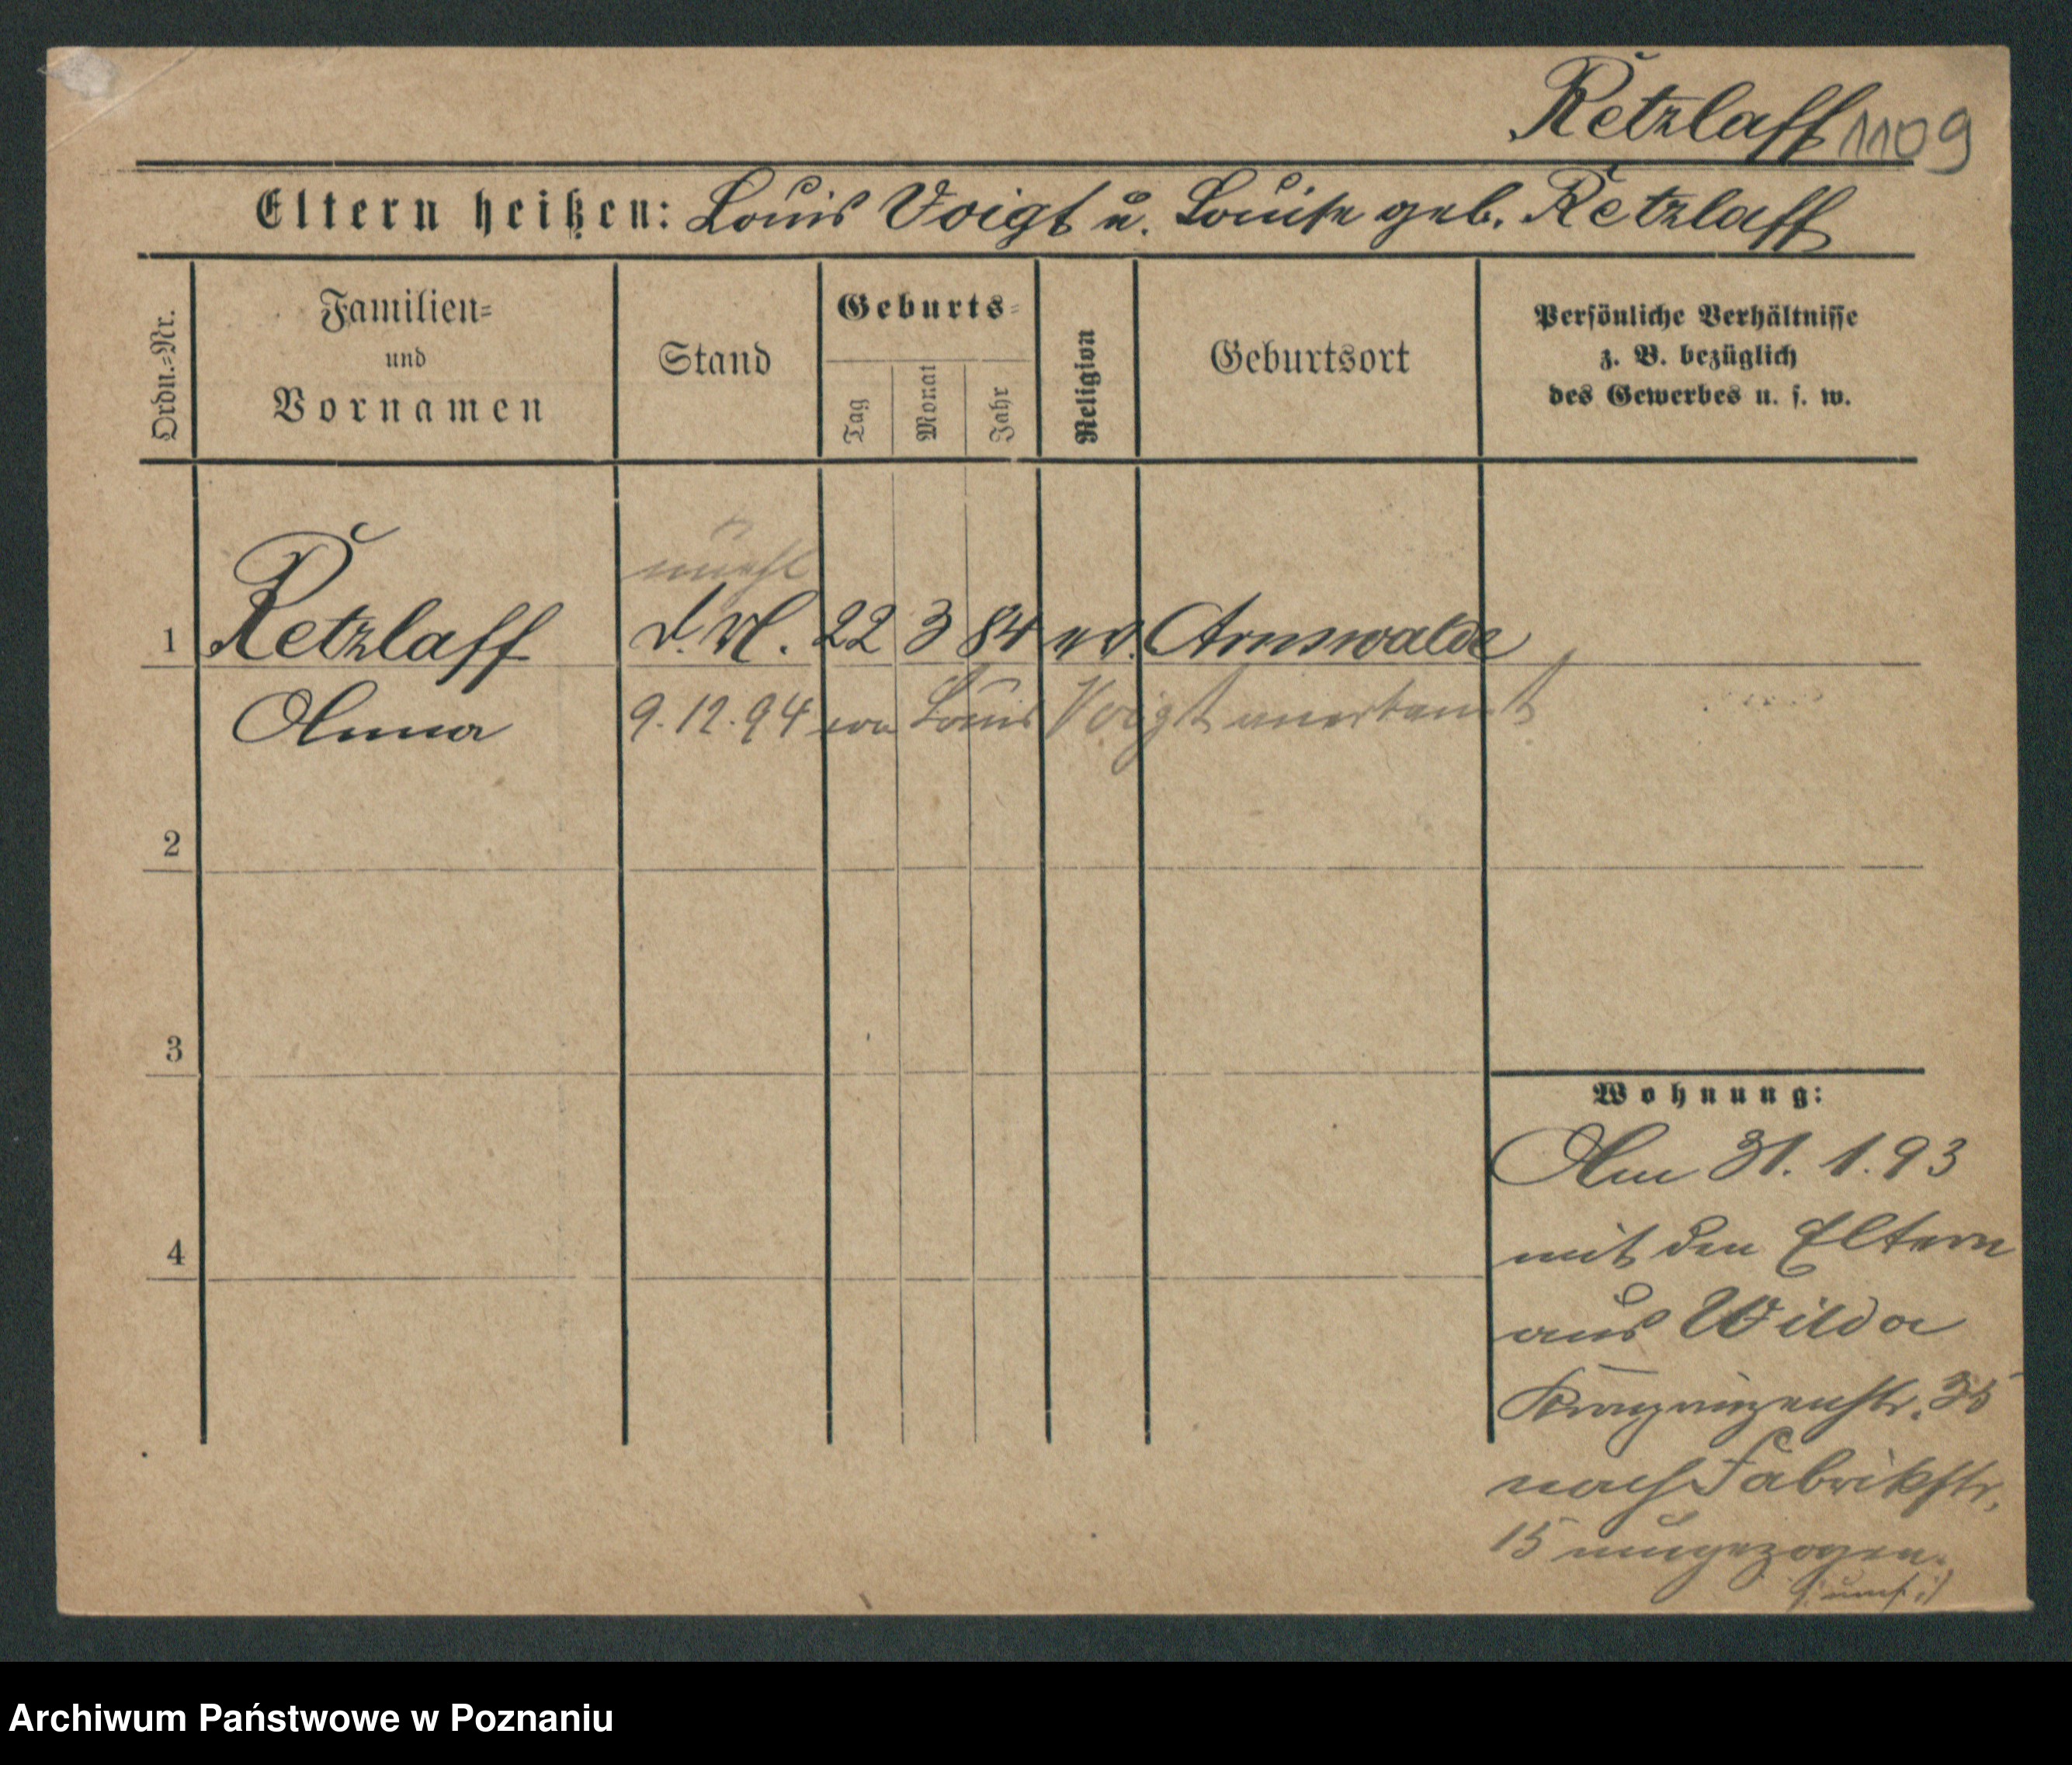 Retzlaff 1109
Eltern heißen: Louis Voigt u. Louise geb. Retzlaff
Ordn.-Nr.
Familien-
und
Vornamen
Stand
Geburts-
Tag
Monat
Jahr
Religion
Geburtsort
Persönliche Verhältnisse
z. B. bezüglich
des Gewerbes u. s. w.
unehl
1 Retzlaff 22 3 84 ev. Arnswalde
Anna 9.12.94 von Louis Voigt anerkannt
2
3
4
Wohnung:
Am 31. 1. 93
mit den Eltern
aus Wilda
Kronprinzenstr. 35
nach Fabrikstr.
15 umgezogen.